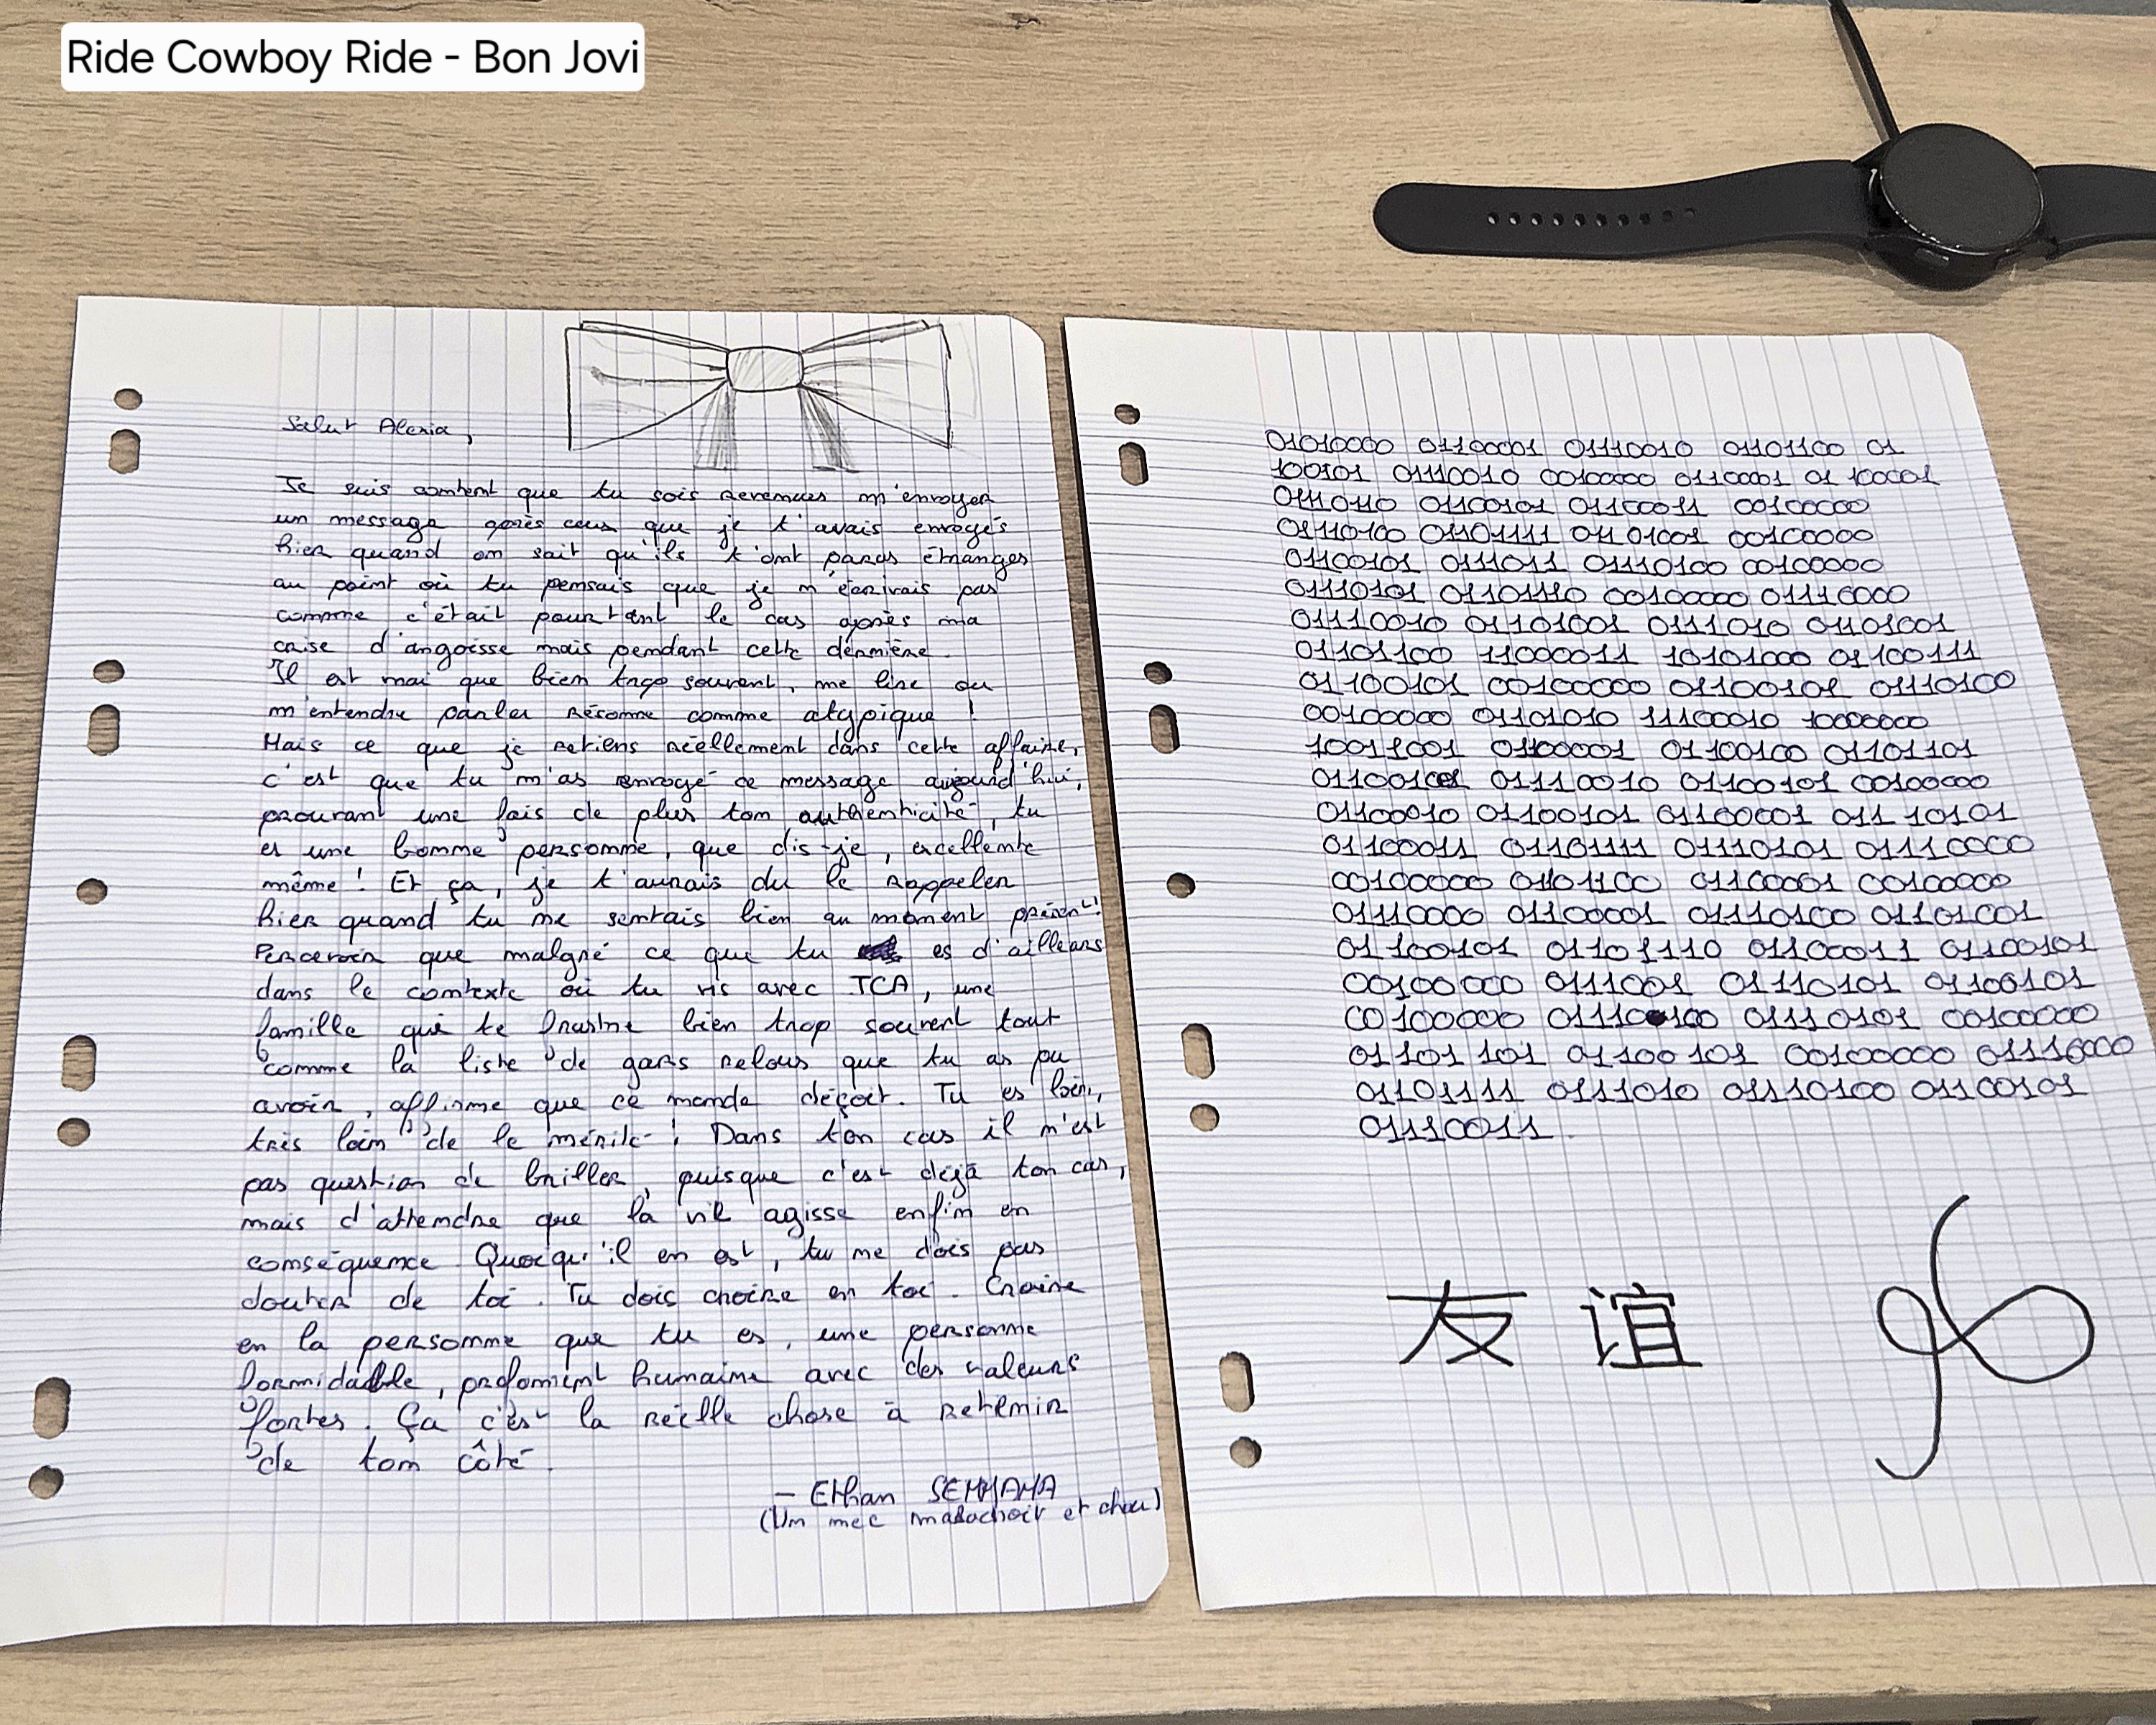 Ride Cowboy Ride - Bon Jovi
Salut Alexia,
Je suis content que tu sois revenues m'envoyer
un message après ceux que je t'avais envoyés
hier quand on sait qu'ils t'ont parus étranges
au point où tu pensais que je n'écrivais pas
comme c'était pourtant le cas après ma
crise d'angoisse mais pendant cette dernière.
Il est vrai que bien trop souvent, me lire ou
m'entendre parler résonne comme atypique !
Mais ce que je retiens réellement dans cette affaire,
c'est que tu m'as envoyé ce message aujourd'hui,
prouvant une fois de plus ton authenticité, tu
es une bonne personne, que dis-je, excellente
même ! Et ça, je t'aurais du le rappeler
hier quand tu me sentais bien au moment présent !
Percevoir que malgré ce que tu es d'ailleurs
dans le contexte où tu vis avec TCA, une
famille qui te frustre bien trop souvent tout
comme la liste de gars relous que tu as pu
avoir, affirme que ce monde déçoit. Tu es loin,
très loin de le mérité ! Dans ton cas il n'est
pas question de briller, puisque c'est déjà ton cas,
mais d'attendre que la vie agisse enfin en
conséquence. Quoiqu'il en est, tu ne dois pas
douter de toi. Tu dois choire en toi. Croire
en la personne que tu es, une personne
formidable, profoment humaine avec des valeurs
fortes. Ça c'est la réelle chose à retenir
de ton côté.
— Ethan SEMMAMA
(Un mec et chou)
01010000 01100001 01110010 01101100 01
100101 01110010 00100000 01100001 01 100001
01110110 01100101 01100011 00100000
01110100 01101111 011 01001 00100000
01100101 0111011 01110100 00100000
01110101 01101110 00100000 01110000
01110010 01101001 0111010 01101001
01101100 11000011 10101000 01100111
01100101 00100000 01100101 01110100
00100000 01101010 11100010 10000000
10011001 01100001 01100100 01101101
01100101 01110010 01100101 00100000
01100010 01100101 01100001 011 10101
01100011 01101111 01110101 01110000
00100000 01101100 01100001 00100000
01110000 01100001 01110100 01101001
01100101 01101110 01100011 01100101
00100000 0111001 01110101 01100101
00100000 01110100 01110101 00100000
01101 101 01100 101 00100000 01110000
01101111 0111010 01110100 01100101
01110011.
友 谊